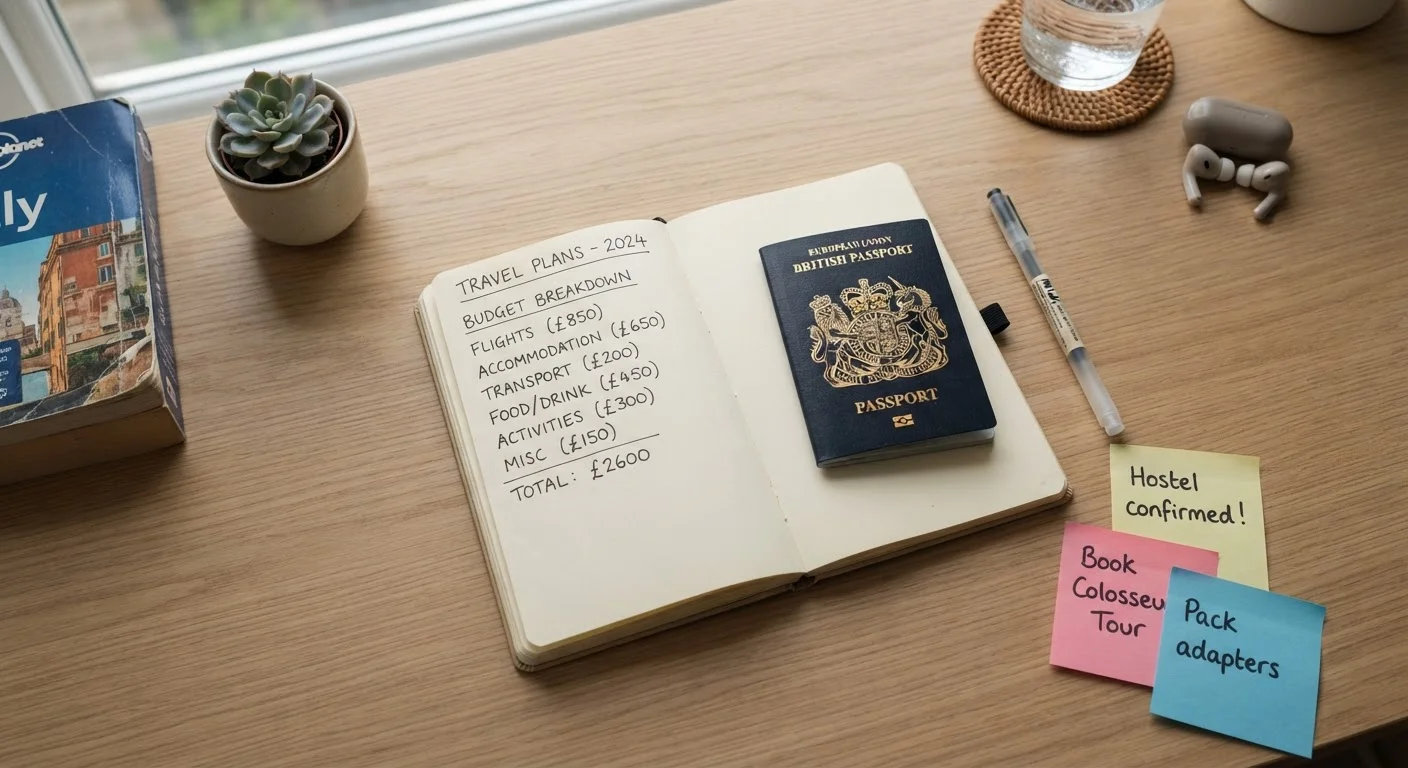 planet
ly
TRAVEL PLANS - 2024
BUDGET BREAKDOWN
FLIGHTS (£850)
ACCOMMODATION (£650)
TRANSPORT (£200)
FOOD/DRINK (£450)
ACTIVITIES (£300)
MISC (£150)
TOTAL: £2600
BRITISH PASSPORT
PASSPORT
Hostel
confirmed!
Book
Colosseu
Tour
Pack
adapters